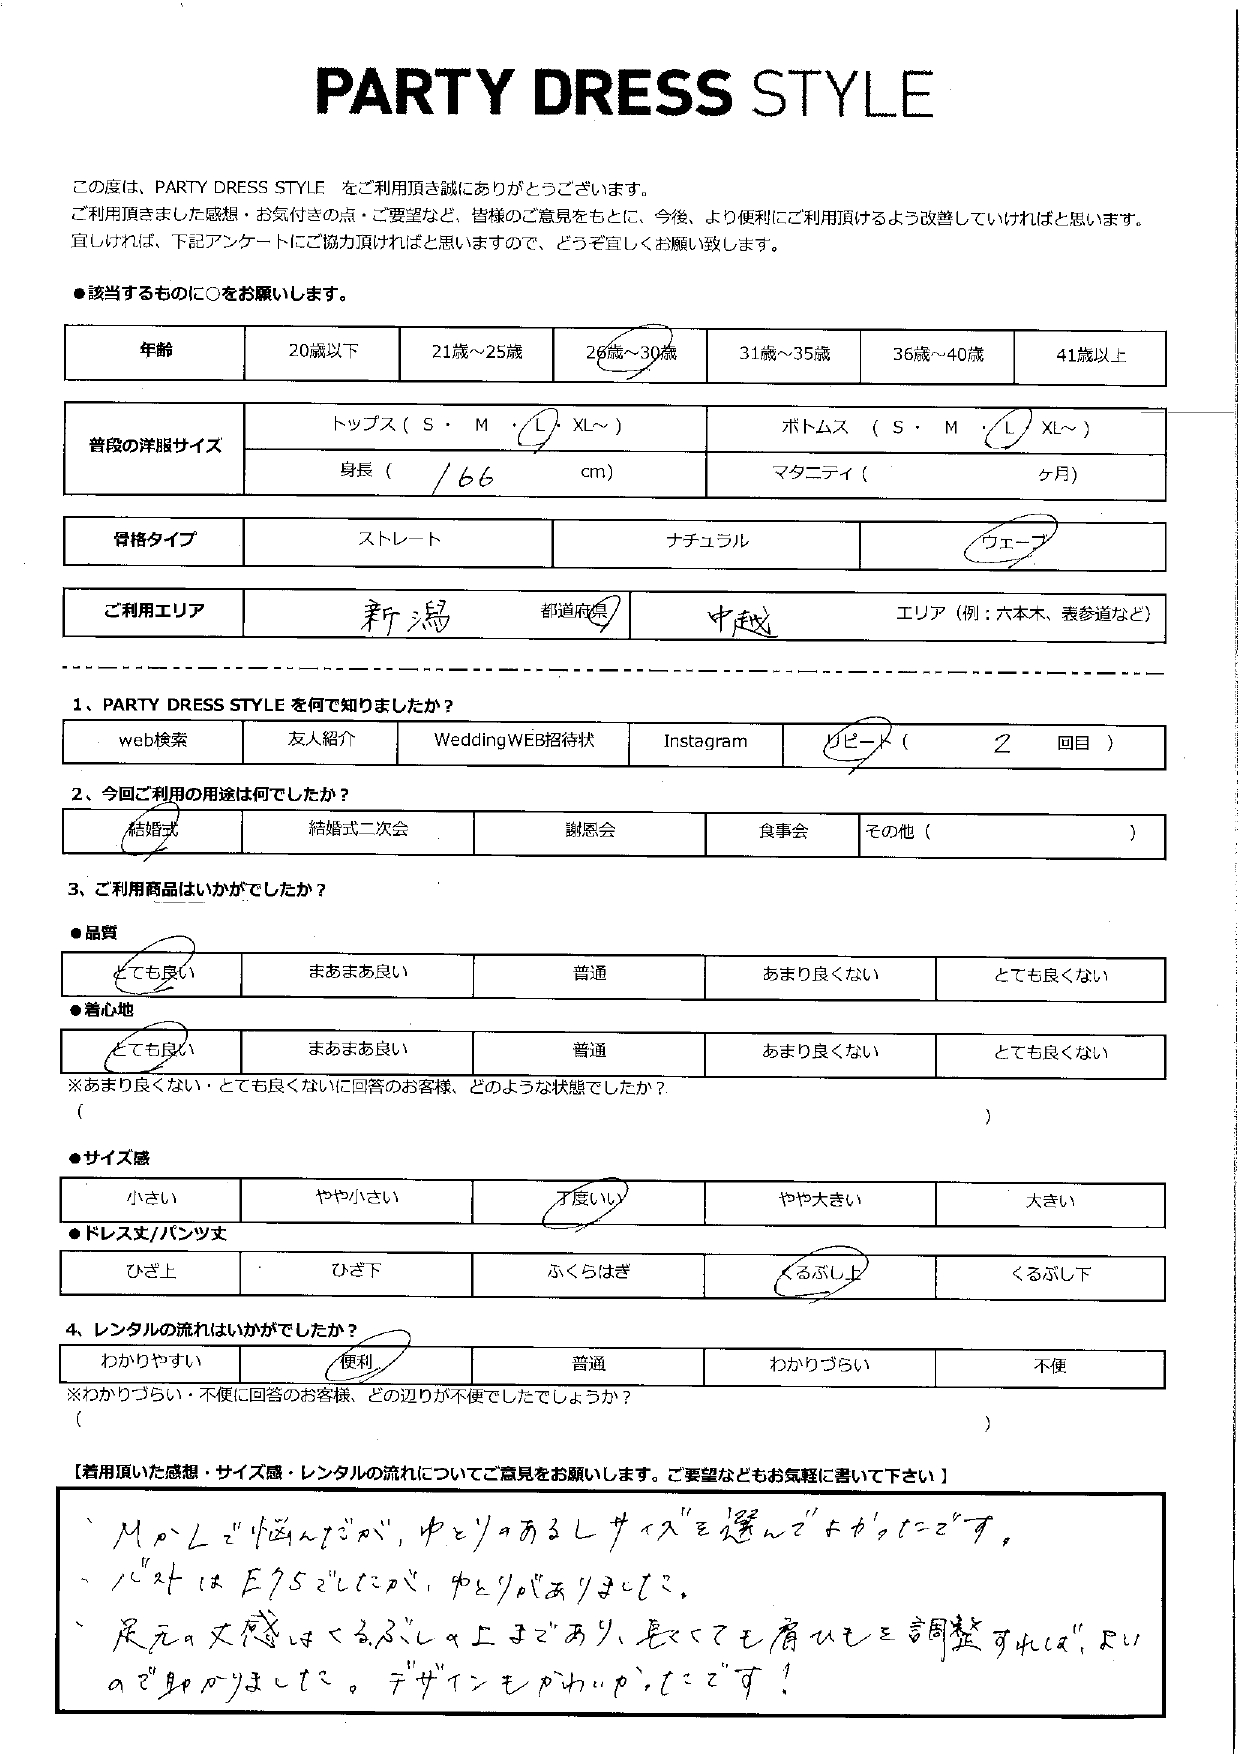 PARTY DRESS STYLE
この度は、PARTY DRESS STYLE をご利用頂き誠にありがとうございます。
ご利用頂きました感想・お気付きの点・ご要望など、皆様のご意見をもとに、今後、より便利にご利用頂けるよう改善していければと思います。
宜しければ、下記アンケートにご協力頂ければと思いますので、どうぞ宜しくお願い致します。
●該当するものに○をお願いします。
年齢 20歳以下 21歳～25歳 26歳～30歳 31歳～35歳 36歳～40歳 41歳以上
普段の洋服サイズ トップス ( S ・ M ・ L ・ XL～ ) ボトムス ( S ・ M ・ L XL～ )
身長 ( 166 cm) マタニティ ( ヶ月)
骨格タイプ ストレート ナチュラル ウェーブ
ご利用エリア 新潟 都道府県 中越 エリア（例：六本木、表参道など）
1、PARTY DRESS STYLE を何で知りましたか？
web検索 友人紹介 WeddingWEB招待状 Instagram リピート ( 2 回目 )
2、今回ご利用の用途は何でしたか？
結婚式 結婚式二次会 謝恩会 食事会 その他 ( )
3、ご利用商品はいかがでしたか？
●品質
とても良い まあまあ良い 普通 あまり良くない とても良くない
●着心地
とても良い まあまあ良い 普通 あまり良くない とても良くない
※あまり良くない・とても良くないに回答のお客様、どのような状態でしたか？
( )
●サイズ感
小さい やや小さい 丁度いい やや大きい 大きい
●ドレス丈/パンツ丈
ひざ上 ひざ下 ふくらはぎ くるぶし上 くるぶし下
4、レンタルの流れはいかがでしたか？
わかりやすい 便利 普通 わかりづらい 不便
※わかりづらい・不便に回答のお客様、どの辺りが不便でしたでしょうか？
( )
【着用頂いた感想・サイズ感・レンタルの流れについてご意見をお願いします。ご要望などもお気軽に書いて下さい】
、MかLで悩んだが、ゆとりのあるLサイズを選んでよかったです。
、バストはE75でしたが、ゆとりがありました。
、足元の丈感はくるぶしの上まであり、長くても肩ひもを調整すれば、よい
ので助かりました。デザインもかわいかったです！